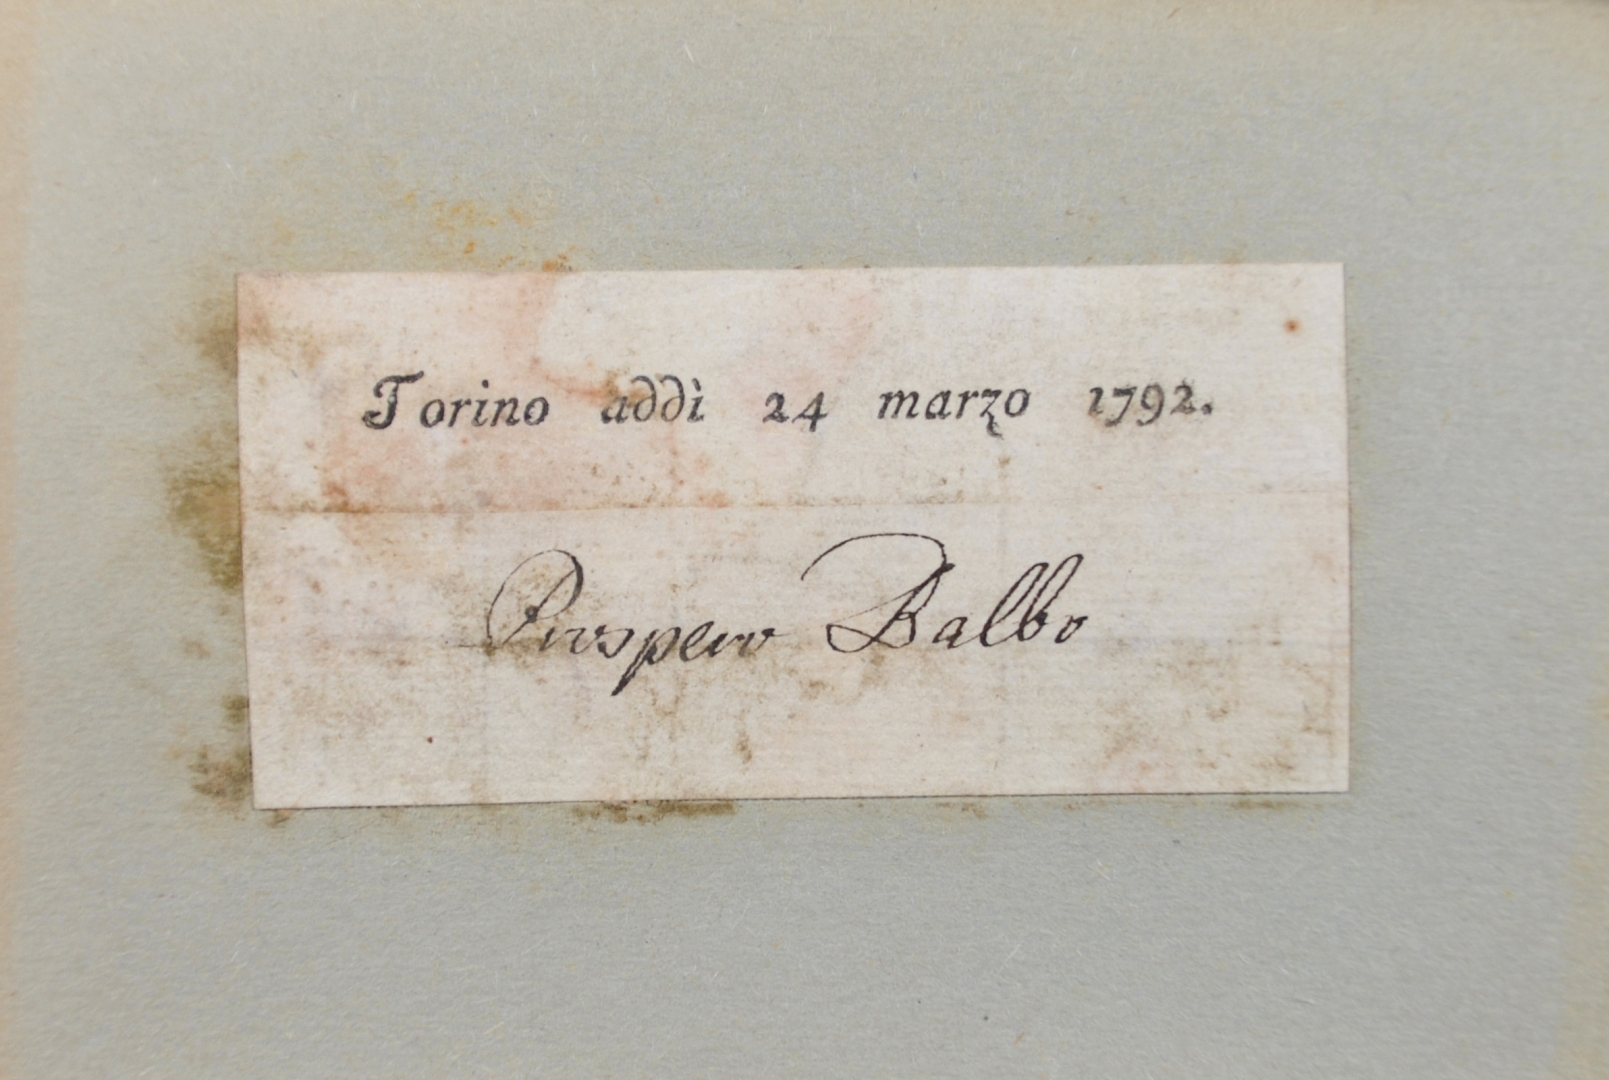 Torino addì 24 marzo 1792.
Prospero Balbo